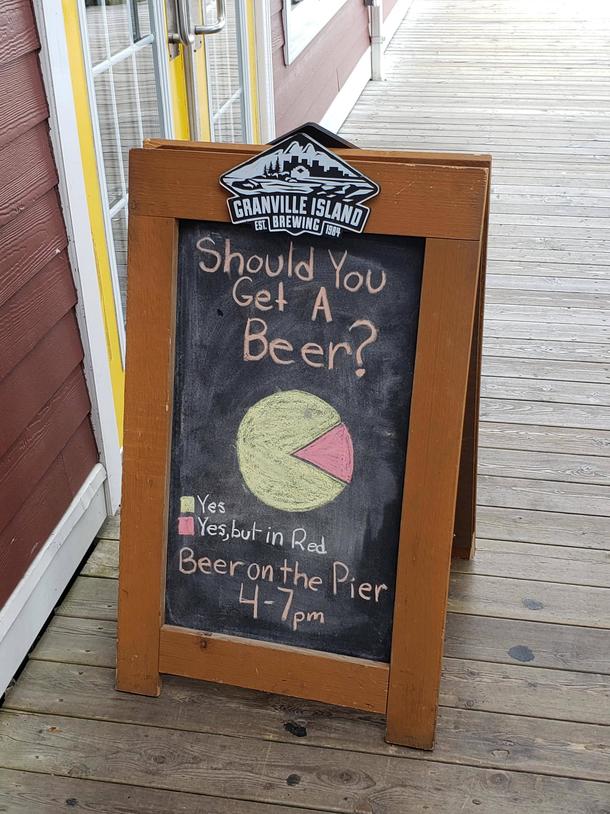 GRANVILLE ISLAND
EST. BREWING 1984
Should You
Get A
Beer?
Yes
Yes, but in Red
Beer on the Pier
4-7pm